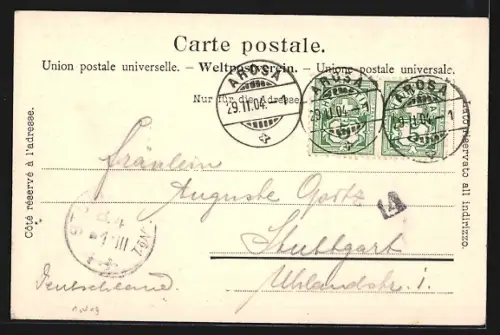 Carte postale.
Union postale universelle. – Weltpostverein. – Unione postale universale.
Nur für die Adresse.
AROSA
29.II.04. – 1
AROSA
29.II.04. 1
AROSA
29.II.04. 1
Côté réservé à l'adresse.
Lato riservato all indirizzo.
Fräulein
Auguste
Stuttgart
Uhlandstr. 1.
Deutschland.
1.III.